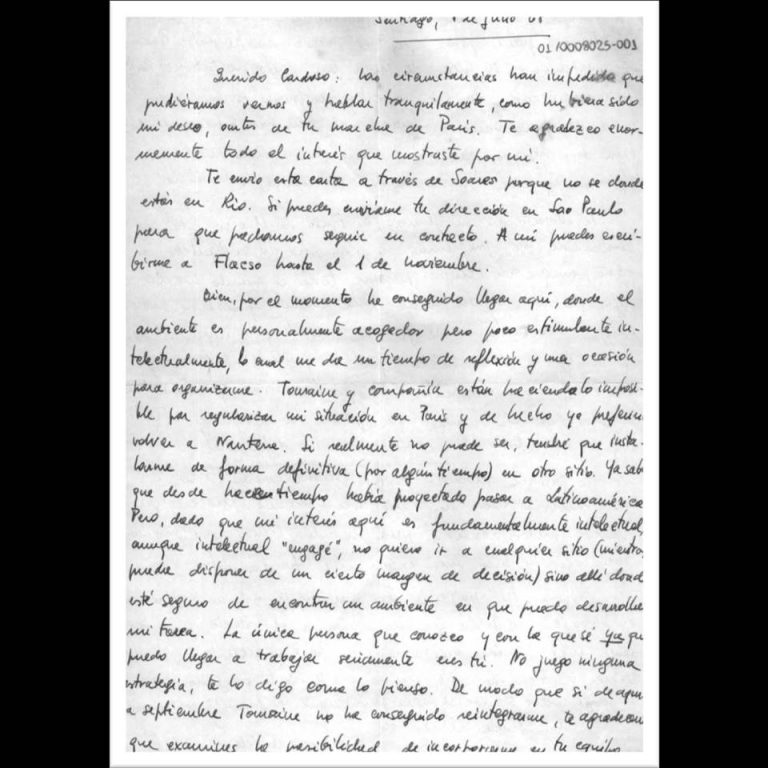 Santiago, 1 de julio 68
01/0008025-001
Querido Cardoso: las circunstancias han impedido que
pudiéramos vernos y hablar tranquilamente, como hubiera sido
mi deseo, antes de tu marcha de París. Te agradezco enor-
memente todo el interés que mostraste por mi.
Te envio esta carta a través de Soares porque no se donde
estás en Rio. Si puedes enviame tu dirección en Sao Paulo
para que podamos seguir en contacto. A mi puedes escri-
birme a Flacso hasta el 1 de noviembre.
Bien, por el momento he conseguido llegar aquí, donde el
ambiente es personalmente acogedor pero poco estimulante in-
telectualmente, lo cual me da un tiempo de reflexión y una ocasión
para organizarme. Touraine y compañía están haciendo lo imposi-
ble por regularizar mi situación en París y de hecho yo prefiero
volver a Nanterre. Si realmente no puede ser, tendré que insta-
larme de forma definitiva (por algún tiempo) en otro sitio. Ya sab
que desde hace tiempo había proyectado pasar a Latinoamérica
Pero, dado que mi interés aquí es fundamentalmente intelectual,
aunque intelectual "engagé", no quiero ir a cualquier sitio (mientra
pueda disponer de un cierto margen de decisión) sino allí dond
esté seguro de encontrar un ambiente en que pueda desarrollar
mi tarea. La única persona que conozco y con la que sé que
puedo llegar a trabajar seriamente eres tú. No juego ninguna
estrategia, te lo digo como lo pienso. De modo que si de aquí
a septiembre Touraine no ha conseguido reintegrarme, te agradecería
que examines la posibilidad de incorporarme en tu equipo